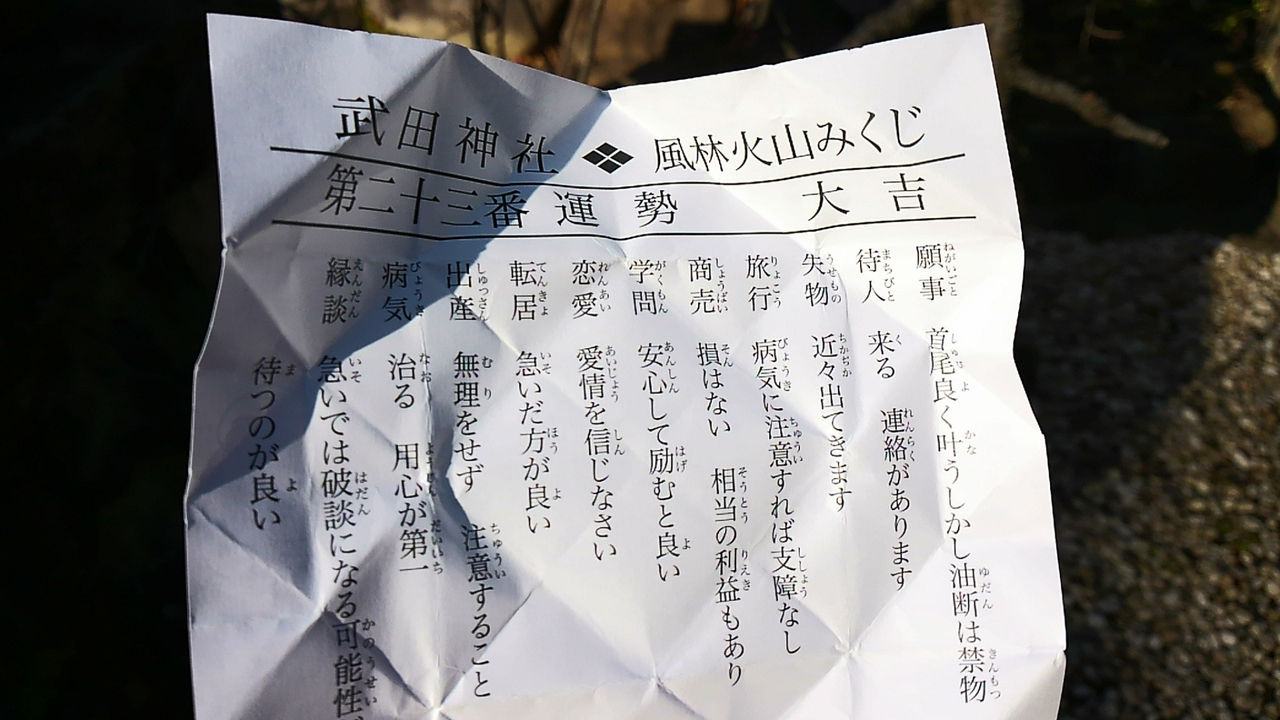 武田神社 風林火山みくじ
第二十三番 運勢 大吉
願事 首尾良く叶うしかし油断は禁物
待人 来る 連絡があります
失物 近々出てきます
旅行 病気に注意すれば支障なし
商売 損はない 相当の利益もあり
学問 安心して励むと良い
恋愛 愛情を信じなさい
転居 急いだ方が良い
出産 無理をせず 注意すること
病気 治る 用心が第一
縁談 急いでは破談になる可能性
待つのが良い